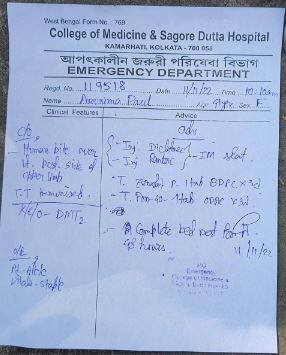 West Bengal Form No. - 769
College of Medicine & Sagore Dutta Hospital
KAMARHATI, KOLKATA - 700 058
আপৎকালীন জরুরী পরিষেবা বিভাগ
EMERGENCY DEPARTMENT
Regd. No. 119518 11/11/22 Time 10:10am
Name Paul Age Sex F
Clinical Features
Advice
c/o
Human bite over
Lt. side of
upper limb
T.T immunised
adv
- Inj. Diclofenac
- Inj. Rantac
IM stat
- T. P 1tab BDPC x 3d
- T. Pan-40 - 1tab x 3d
- Complete bed rest for
hours
11/11/22
K/C/O - DMT2
o/e
Pt. Alert
Vitals - stable
MO
Emergency
College of Medicine &
Sagore Dutta Hospital